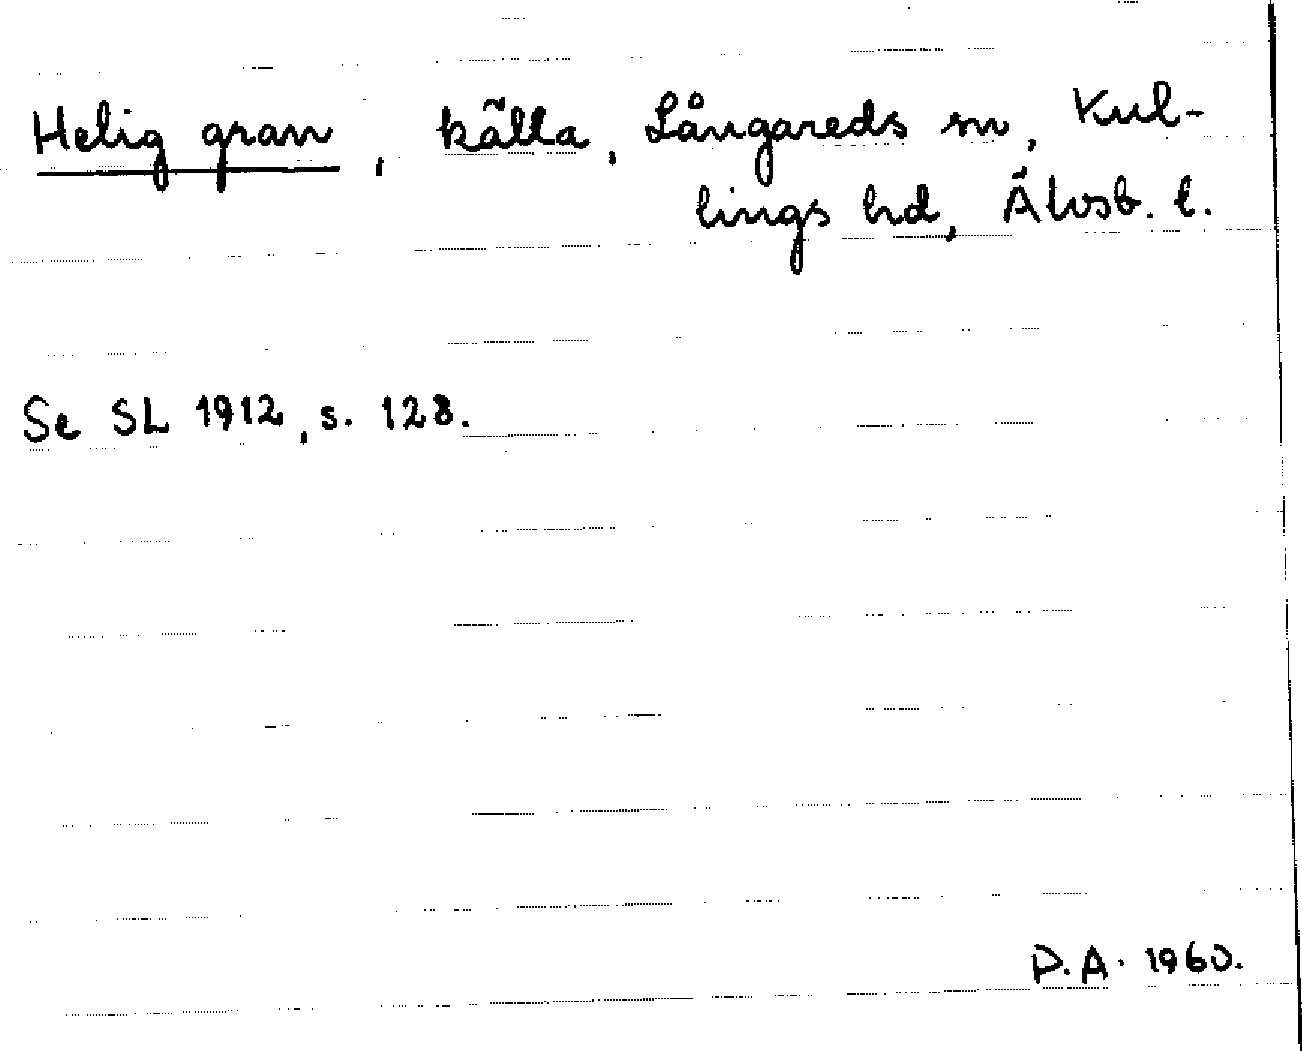 Helig gran, källa, Långareds sn, Kul-
lings hd, Älvsb. l.
Se SL 1912, s. 128.
D.A. 1960.